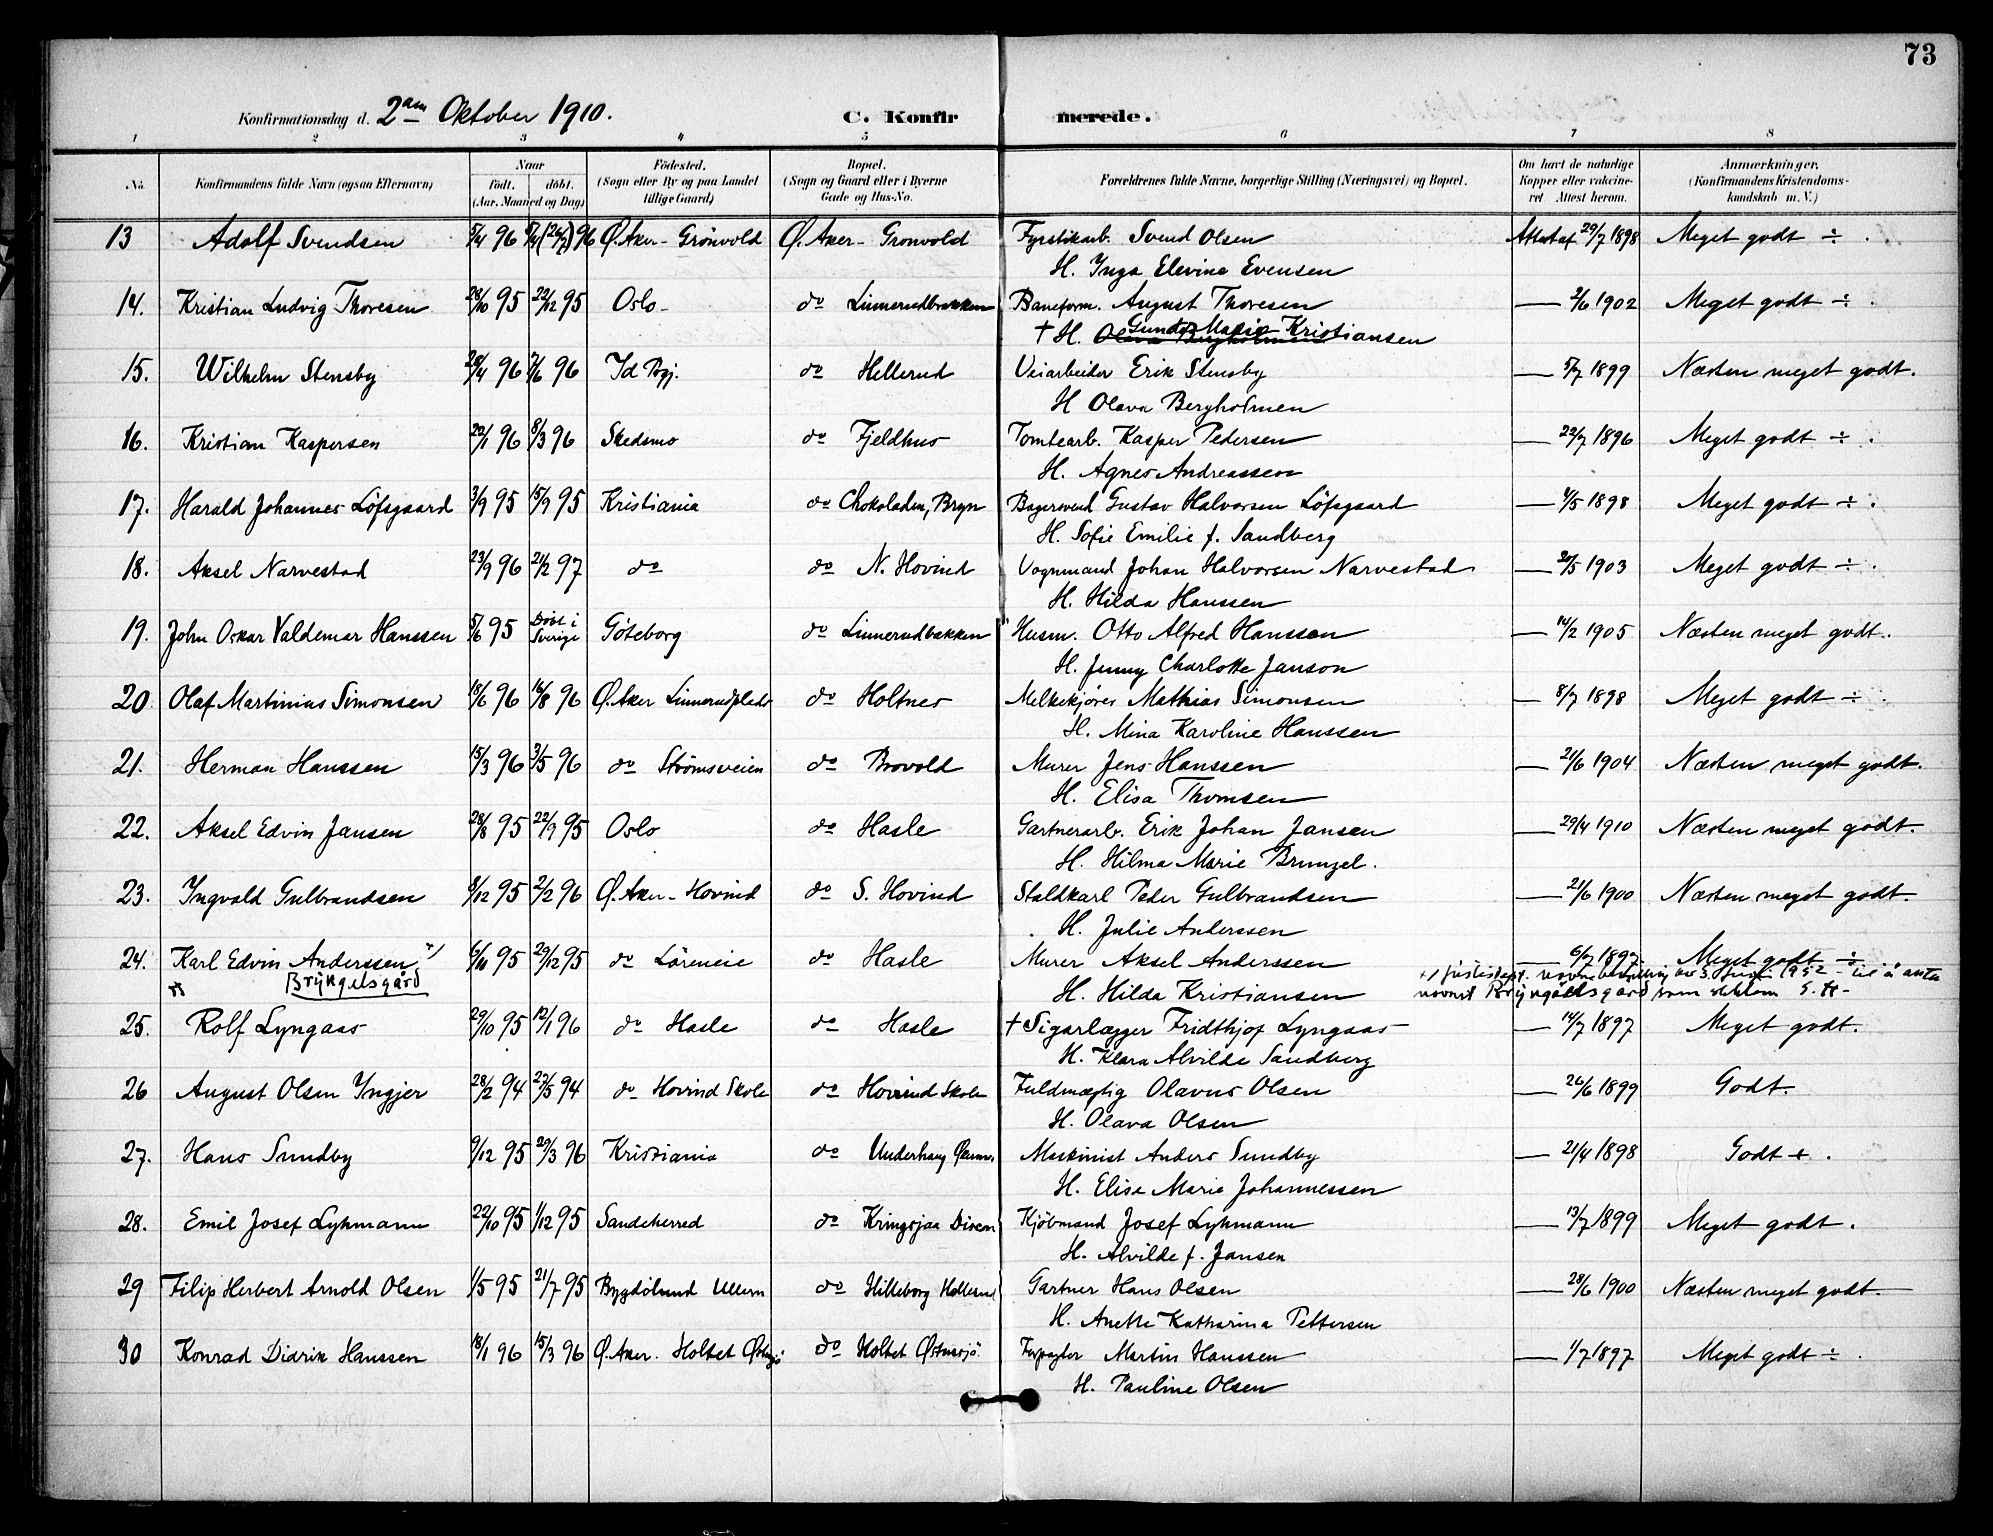 73
Konfirmationsdag d. 2den Oktober 1910. C. Konfirmerede.
1 2 3 4 5 6 7 8
No. Konfirmandens fulde Navn (ogsaa Efternavn) Naar födt. döbt. (Aar, Maaned og Dag) Födested. (Sogn eller By og paa Landet tillige Gaard) Bopæl. (Sogn og Gaard eller i Byerne Gade og Hus-No. Forældrenes fulde Navne, borgerlige Stilling (Næringsvei) og Bopæl. Om havt de naturlige Kopper eller vakcineret Attest herom. Anmærkninger. (Konfirmandens Kristendomskundskab m. V.)
13 Adolf Svendsen 5/4 96 96 Ø. Aker - Grönvold Ø. Aker - Gronvold Fyrstikarb. Svend Olsen Attest af 29/7 1898 Meget godt ÷.
H. Inga Elevine Evensen
14. Kristian Ludvig Thoresen 28/10 95 22/12 95 Oslo - do Linnerudbakken Baneform. August Thoresen — 2/6 1902 Meget godt ÷.
† H. Gunda Maria Kristiansen
15. Wilhelm Stensby 28/4 96 7/6 96 Id Pgj. do Hellerud Veiarbeider Erik Stensby — 5/7 1899 Næsten meget godt.
H Olava Bergholmen
16. Kristian Kaspersen 20/1 96 8/3 96 Skedsmo do Fjeldhus Tomtearb. Kasper Pedersen — 22/7 1896 Meget godt ÷.
H. Agnes Andreassen
17. Harald Johannes Löfsgaard 3/9 95 15/9 95 Kristiania do Chokoladen, Bryn Bagersvend Gustav Halvorsen Löfsgaard — 4/5 1898 Meget godt ÷.
H. Sofie Emilie f. Sandberg
18. Aksel Narvestad 23/9 96 21/2 97 do do N. Hovind Vognmand Johan Halvorsen Narvestad — 20/5 1903 Meget godt ÷.
H. Hilda Hanssen
19. John Oskar Valdemar Hanssen 5/6 95 Döbt i Sverige Göteborg do Linnerudbakken Husm. Otto Alfred Hanssen — 14/2 1905 Næsten meget godt.
H. Jenny Charlotte Janson
20 Olaf Martinius Simonsen 18/6 96 16/8 96 Ø. Aker Linnerudplads do Holtnes Melkekjörer Mathias Simonsen — 8/7 1898 Meget godt ÷.
H. Mina Karoline Hanssen
21. Herman Hanssen 15/3 96 3/5 96 do Strömsveien do Brovold Murer Jens Hanssen — 21/6 1904 Næsten meget godt.
H. Elisa Thomsen
22. Aksel Edvin Jansen 28/8 95 22/9 95 Oslo do Hasle Gartnerarb. Erik Johan Jansen — 29/4 1910 Næsten meget godt.
H. Hilma Marie Brunzel.
23. Ingvald Gulbrandsen 9/12 95 2/2 96 Ø. Aker - Hovind do S. Hovind Staldkarl Peder Gulbrandsen — 21/6 1900 Næsten meget godt.
H. Julie Anderssen
24. Karl Edvin Anderssen x/ 6/10 95 29/12 95 do Löreneie do Hasle Murer Aksel Anderssen — 6/7 1897 Meget godt ÷
Brÿkgelsgård H. Hilda Kristiansen
25. Rolf Lyngaas 29/10 95 12/1 96 do Hasle do Hasle † Sigarlægger Fridthjof Lyngaas — 14/7 1897 Meget godt.
H. Klara Alvilde Sandberg
26 August Olsen Yngjer 28/2 94 27/5 94 do Hovind Skole do Hovind Skole Fuldmægtig Olavus Olsen — 26/6 1899 Godt.
H. Olava Olsen
27. Hans Sundby 9/12 95 29/3 96 Kristiania do Underhaug Maskinist Anders Sundby — 21/4 1898 Godt + .
H. Elise Marie Johannessen
28. Emil Josef Lykmann 22/10 95 1/12 95 Sandeherred do Kringsjaa Disen Kjöbmand Josef Lykmann — 13/7 1899 Meget godt.
H. Alvilde f. Jansen
29 Filip Herbert Arnold Olsen 1/5 95 21/7 95 Bygdölund Ullern do Hilleborg Hellerud Gartner Hans Olsen — 28/6 1900 Næsten meget godt.
H. Anette Katharina Pettersen
30 Konrad Didrik Hanssen 18/1 96 15/3 96 Ø. Aker. Holtet Østensjö do Holtet Østensjö Forpagter Martin Hanssen — 1/7 1897 Meget godt ÷ .
H. Pauline Olsen